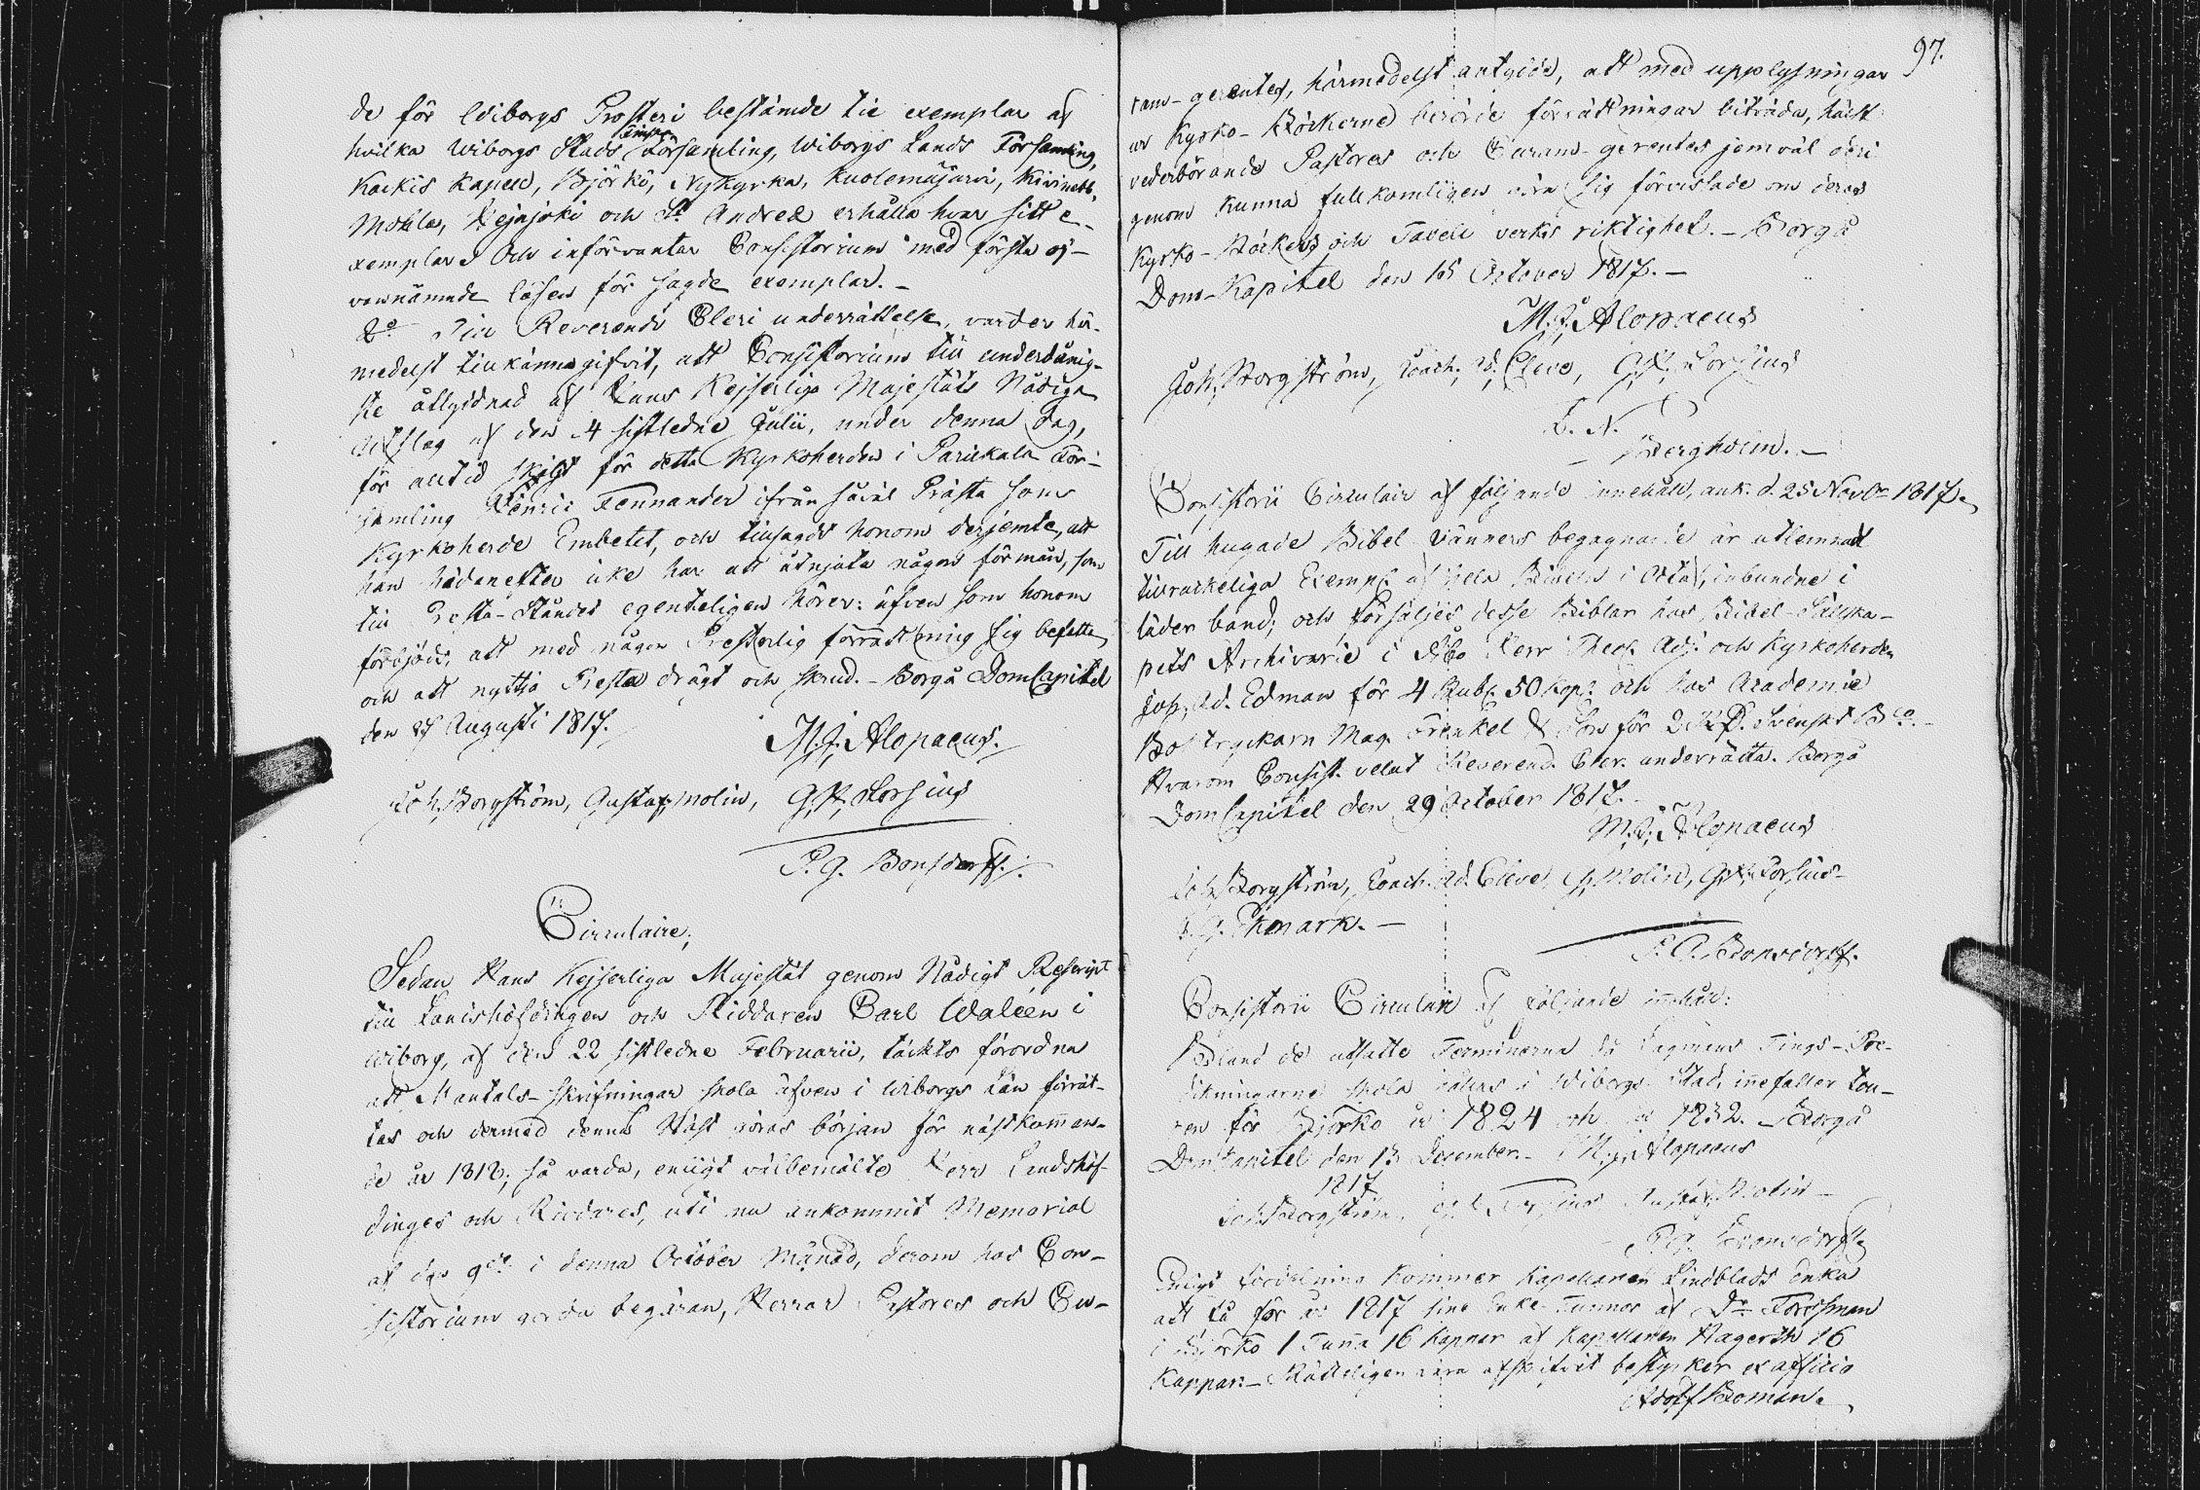 de för Wiborgs Prosteri bestämde tie exemplar af
hvilka Wiborgs Stads finska Församling, Wiborgs Lands Församling,
Kackis Kapell, Björkö, Nykyrka, Kuolemajärvi, Kivinebb,
Mohla, Hejnjoki och St Andreæ erhålla hvar sitt e-
xemplar. Och införvantar Consistorium med första of-
vannämnde lösen för sagde exemplar. -
2o Till Reverendi Cleri underrättelse, varder här-
medelst tillkännagifvit, att Consistorium till underdånig-
ste åtlydnad af Hans Kejserliga Majestäts Nådiga
Utslag af den 4 sistledne Julii, under denna dag,
för alltid skiljt för detta Kyrkoherden i Parikala För-
samling Henric Fennander ifrån såväl Prästa som
Kyrkoherde Embetet, och tillsagdt honom derjemte, att
han hädanefter icke har att åtnjuta någon förmån, som
till Presta-Ståndet egenteligen hörer: äfven som honom
förbjöds, att med någon Presterlig förrättning sig befatta,
och att nyttja Presta drägt och skrud. - Borgå DomCapitel
den 27 Augusti 1817.
M. J. Alopaeus.
Joh. Borgström, Gustaf Molin, G. H. Forsius
P. G. Bonsdorff.
Circulaire;
Sedan Hans Kejserliga Majestät genom Nådigt Rescript
till Landshöfdingen och Riddaren Carl Waléen i
Wiborg, af den 22 sistledne Februarii, täckts förordna
att Mantals-skrifningar skola äfven i Wiborgs Län förrät-
tas och dermed denna Höst göras början för nästkomman-
de år 1818; så varda, enligt välbemälte Herr Landshöf-
dinges och Riddares, uti nu ankommit Memorial
af den 9de i denna October Månad, derom hos Con-
sistorium gjorda begäran, Herrar Pastores och Cu-
97.
ram-gerentes, härmedelst antydde, att med upplysningar
ur Kyrko-Böckerne berörde förrättningar biträda, hälst
vederbörande Pastores och Curam-gerentes jemväl deri
genom kunna fullkomligen göra sig förvissade om deras
Kyrko-Böckers och Tabell verks riktighet. - Borgå
Dom-Kapitel den 15 October 1817. -
M. J. Alopaeus
Joh. Borgström, Zach. Ad. Cleve, G. H. Forsius
E. N.
Bergholm. -
Consistorii Circulair af följande innehåll, ank. d. 25 Novbr 1817.
Till hugade Bibel vänners begagnande är utlemnadt
tillräckeliga Exempl af hela Bibeln i Octaf, inbundne i
läder band; och försäljes desse Biblar hos Bibel-Sällska-
pets Archivarie i Åbo Herr Theol. Adj. och Kyrkoherden
Joh. Ad. Edman för 4 Rubl. 50 Kop. och hos Academie
Boktryckarn Mag. Frenkel & Son för 2 Rd. Svenskt Bco. -
Hvarom Consist. velat Reverend. Cler. underrätta. Borgå
DomCapitel den 29 October 1817.
M. J. Alopaeus
Joh. Borgström, Zach. Ad. Cleve, G. Molin, G. H. Forsius
Ekmark. -
P. G. Bonsdorff.
Consistorii Circulair af följande innehåll:
Bland de utsatte Terminerna då Lagmans Tings-Pre-
dikningarne skola hållas i Wiborgs Stad, innefaller tou-
ren för Björkö år 1824 och år 1832. - Borgå
DomCapitel den 13 December. - M. J. Alopaeus
1817
Joh. Borgström, G. H. Forsius, Gustaf Molin -
P. G. Bonsdorff
Enligt fördelning kommer Kapellanen Lindblads Enka
att få för år 1817 sine Enke-Tunnor af Dr Forssman
i Björkö 1 Tunna 16 Kappar af Kapellanen Hagerth 16
Kappar. - Rätteligen vara afskrifvit bestyrker ex officio
Adolf Boman.